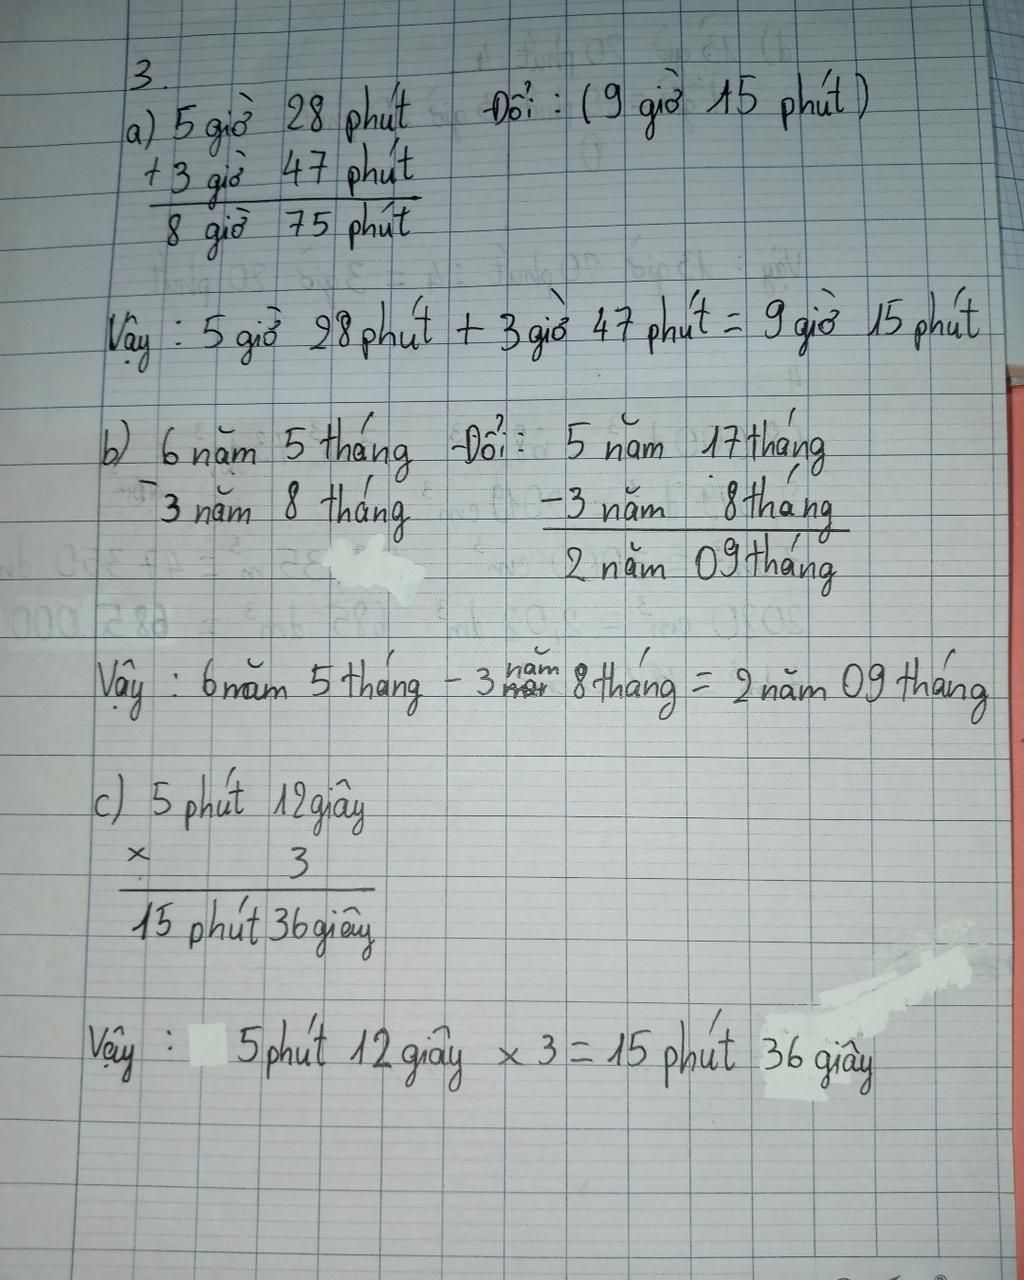 3.
a) 5 giờ 28 phút Đổi : (9 giờ 15 phút)
+ 3 giờ 47 phút
8 giờ 75 phút
Vậy : 5 giờ 28 phút + 3 giờ 47 phút = 9 giờ 15 phút
b) 6 năm 5 tháng Đổi : 5 năm 17 tháng
- 3 năm 8 tháng - 3 năm 8 tháng
2 năm 09 tháng
Vậy : 6 năm 5 tháng - 3 năm 8 tháng = 2 năm 09 tháng
c) 5 phút 12 giây
× 3
15 phút 36 giây
Vậy : 5 phút 12 giây × 3 = 15 phút 36 giây